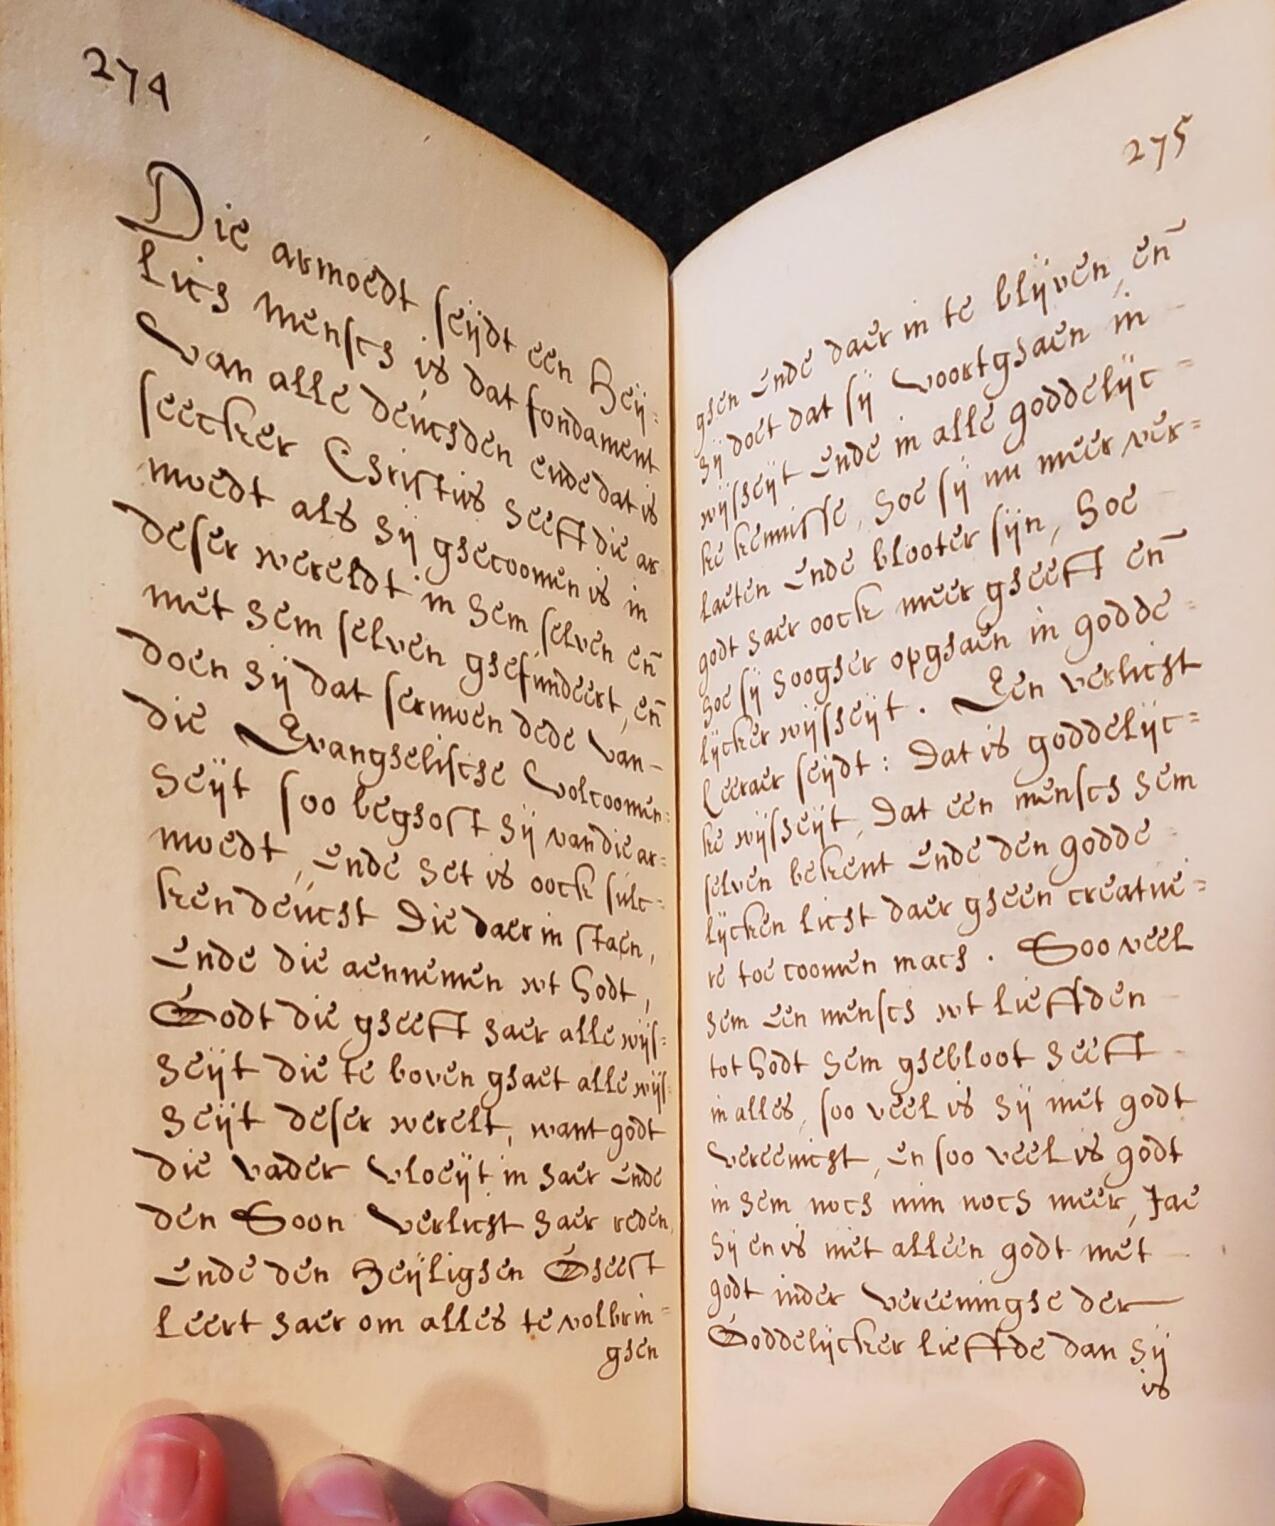 274
Die armoedt seijdt een Heij=
lich mensch is dat fondament
van alle deuchden ende dat is
seecker Christus heeft die ar
moedt als hij ghecoomen is in
deser wereldt in hem selven en̄
met hem selven ghefundeert, en̄
doen hij dat sermoen dede van
die Evanghelische volcoomen=
heijt soo beghost hij van die ar=
moedt, ende het is oock sulc=
ken deucht Die daer in staen,
Ende die aennemen wt Godt,
Godt die gheeft haer alle wijs=
heijt die te boven ghaet alle wijs
heijt deser werelt, want godt
die vader vloeijt in haer ende
den Soon verlicht haer reden
Ende den Heijlighen Gheest
leert haer om alles te volbrin=
ghen
275
ghen ende daer in te blijven, en̄
hij doet dat sij voortghaen in
wijsheijt ende in alle goddelijc=
ke kennisse, hoe sij nu meer ver=
laeten ende blooter sijn, hoe
godt haer oock meer gheeft en̄
hoe sij hoogher opghaen in godde=
lijcker wijsheijt. Een verlicht
Leeraer seijdt: Dat is goddelijc=
ke wijsheijt, Dat een mensch hem
selven bekent ende den godde
lijcken licht daer gheen creatue=
re toe coomen mach. Soo veel
hem een mensch wt liefden
tot Godt hem ghebloot heeft
in alles, soo veel is hij met godt
vereenicht, en soo veel is godt
in hem noch min noch meer, Jae
hij en is niet alleen godt met
godt inder vereeninghe der
Goddelijcker liefde dan hij
is